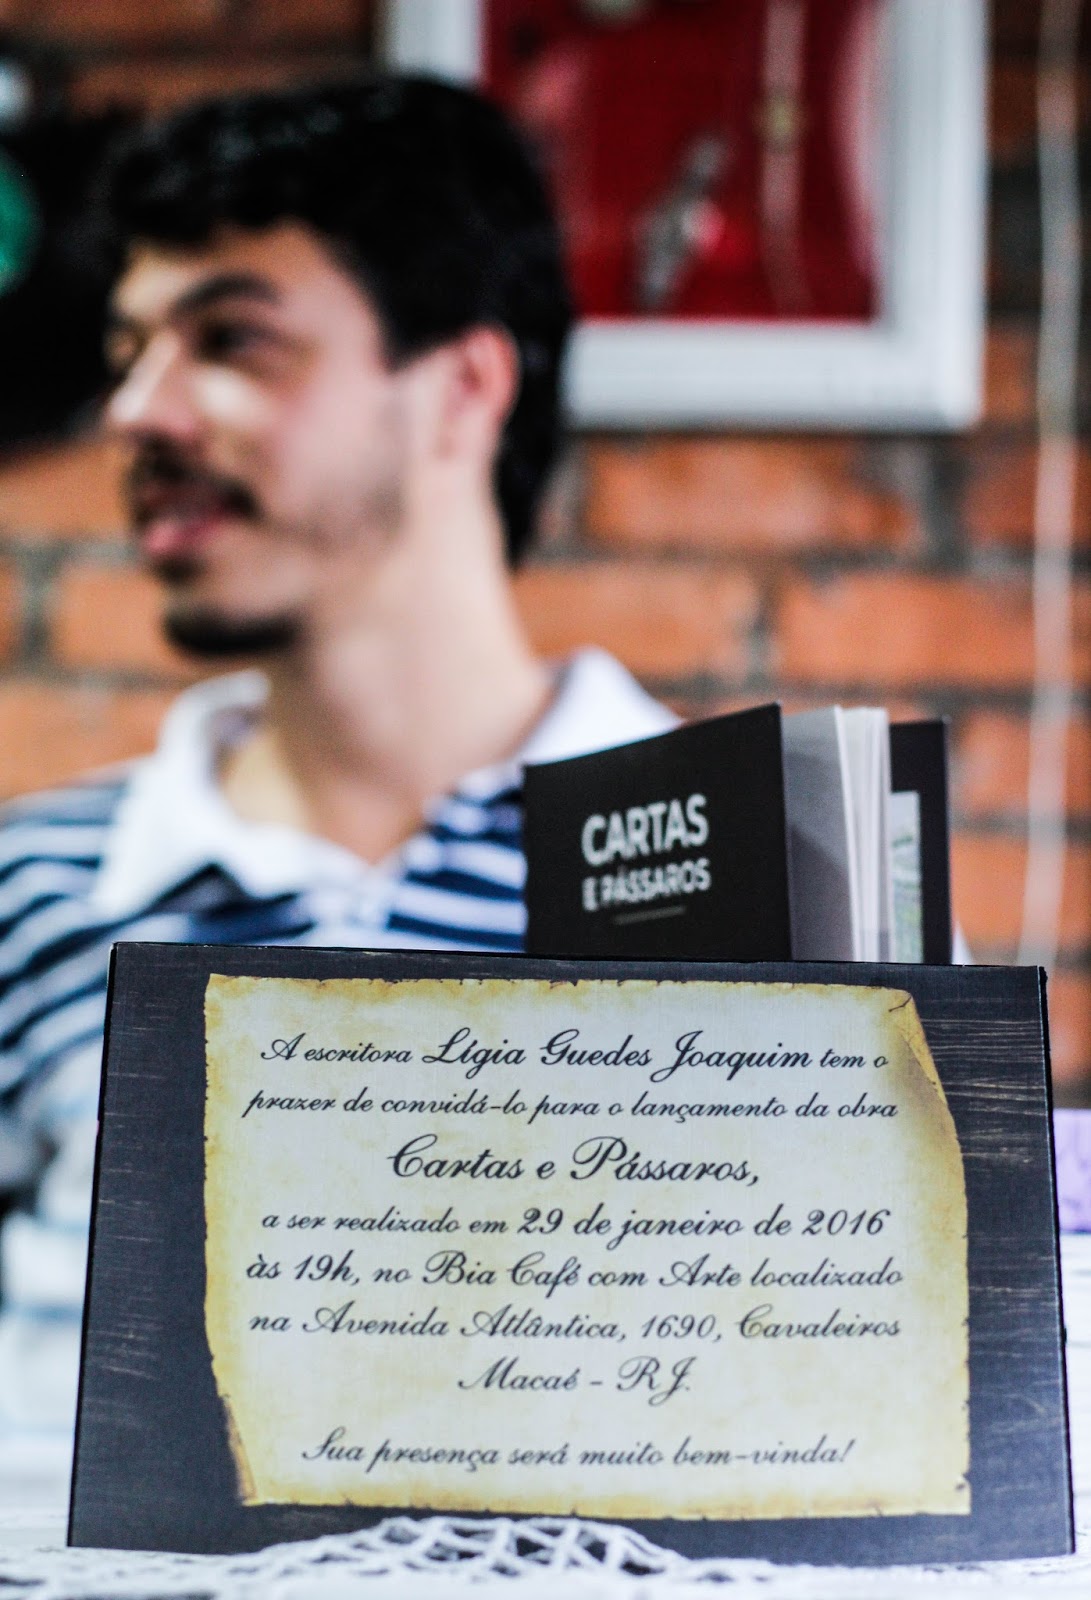 CARTAS
E PÁSSAROS
A escritora Lígia Guedes Joaquim tem o
prazer de convidá-lo para o lançamento da obra
Cartas e Pássaros,
a ser realizado em 29 de janeiro de 2016
às 19h, no Bia Café com Arte localizado
na Avenida Atlântica, 1690, Cavaleiros
Macaé - RJ.
Sua presença será muito bem-vinda!